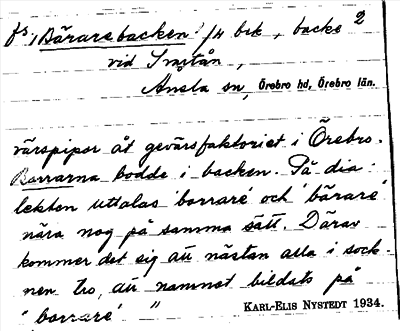 fs, Bärarebacken, fr brk, backe 2
vid Svartån,
Ansta sn, Örebro hd, Örebro län.
värspipor åt gevärsfaktoriet i Örebro.
Borrarna bodde i backen. På dia-
lekten uttalas 'borrare' och 'bärare'
nära nog på samma sätt. Därav
kommer det sig att nästan alla i sock-
nen tro, att namnet bildats på
"borrare"
KARL-ELIS NYSTEDT 1934.